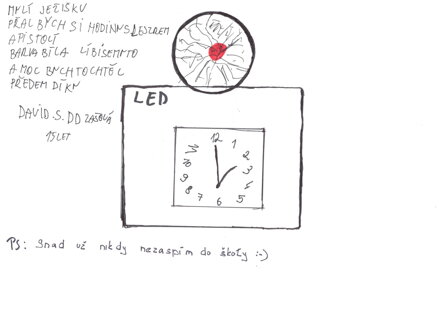 MILÝ JEŽÍŠKU
PŘAL BYCH SI HODINY S LESEREM
A PISTOLÍ
BARVA BÍLA LÍBÍ SE MI TO
A MOC BYCH TO CHTĚL
PŘEDEM DÍKY
DAVID.S. DD ZAŠOVÁ
15 LET
LED
12
1
2
3
4
5
6
7
8
9
10
11
PS: Snad už nikdy nezaspím do školy :-)